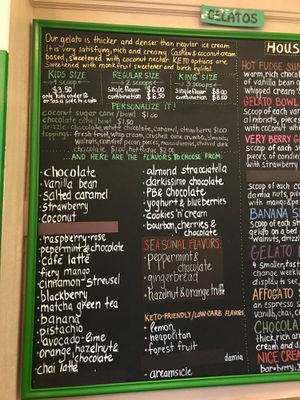 GELATOS
Our gelato is thicker and denser than regular ice cream
It is very satisfying, rich and creamy. Cashew & coconut cream
based, sweetened with coconut nectar. KETO options are
sweetened with monkfruit sweetener and birch xylitol
KIDS SIZE
1 scoop
$3.50
only kids under 12
REGULAR SIZE
2 scoops
single flavor $6.00
combination $6.50
KING SIZE
3 scoops
single flavor $8.00
combination $8.50
PERSONALIZE it!
coconut sugar cone/bowl $1.00
chocolate cone/bowl $1.50
drizzle: chocolate, white chocolate, caramel, strawberry $1.00
toppings: fresh fruit, whip cream, crushed cone crumble, almonds,
...AND HERE ARE THE FLAVORS TO CHOOSE FROM:
• chocolate
• vanilla bean
• salted caramel
• strawberry
• coconut
• raspberry-rose
• peppermint & chocolate
• café latté
• fiery mango
• cinnamon-streusel
• blackberry
• matcha green tea
• banana
• pistachio
• avocado-lime
• orange, hazelnut &
chocolate
• chai latté
• almond stracciatella
• darkissimo chocolate
• PB & chocolate
• yoghurt & blueberries
• cookies 'n' cream
• bourbon, cherries &
chocolate
SEASONAL FLAVORS:
• peppermint &
chocolate
• gingerbread
• hazelnut & orange truffle
KETO-FRIENDLY/LOW CARB FLAVORS
• lemon
• neapolitan
• forest fruit
damia
• creamsicle
HOUS
HOT FUDGE SUN
warm, rich choco
of vanilla bean
whipped cream
GELATO BOWL
Scoop of each
VERY BERRY G
Scoop of each
pieces of candie
with strawberr
scoop of each
BANANA S
scoop of each
gelato on a bed
walnuts, drizzl
GELATO
4 smaller, fast
change week
display to see
AFFOGATO
an espresso
vanilla, chai,
CHOCOLA
thick, rich an
cream and d
NICE CREA